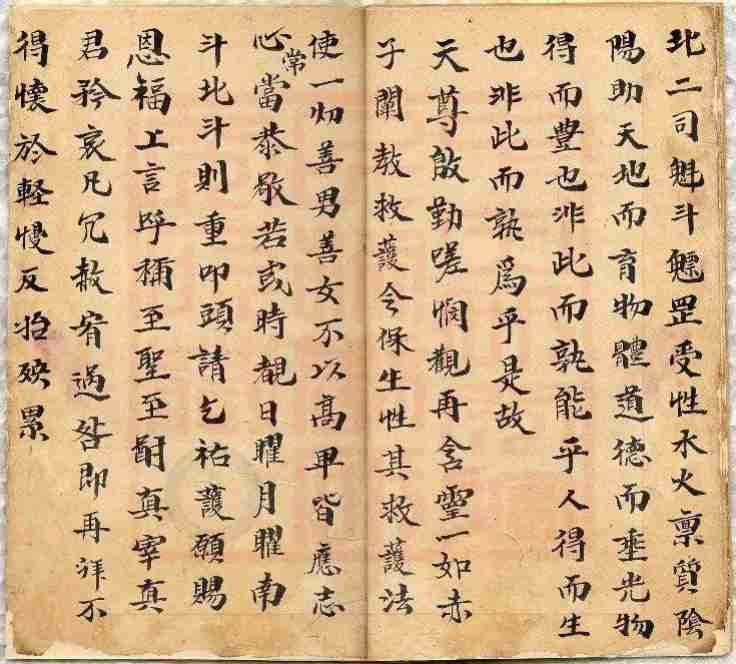 北二司魁斗魒罡受性水火禀質陰
陽助天地而育物體道德而垂光物
得而豊也非此而孰能乎人得而生
也非此而孰爲乎是故
天尊殷勤嗟憫觀再含靈一如赤
子闡教救護令保生性其救護法
使一切善男善女不以高卑皆應志
心常當恭敬若或時覩日曜月曜南
斗北斗則重叩頭請乞祐護願賜
恩福上言呼稱至聖至真宰真
君矜哀凡冗赦宥過咎即再拜不
得懷於軽慢反招殃累